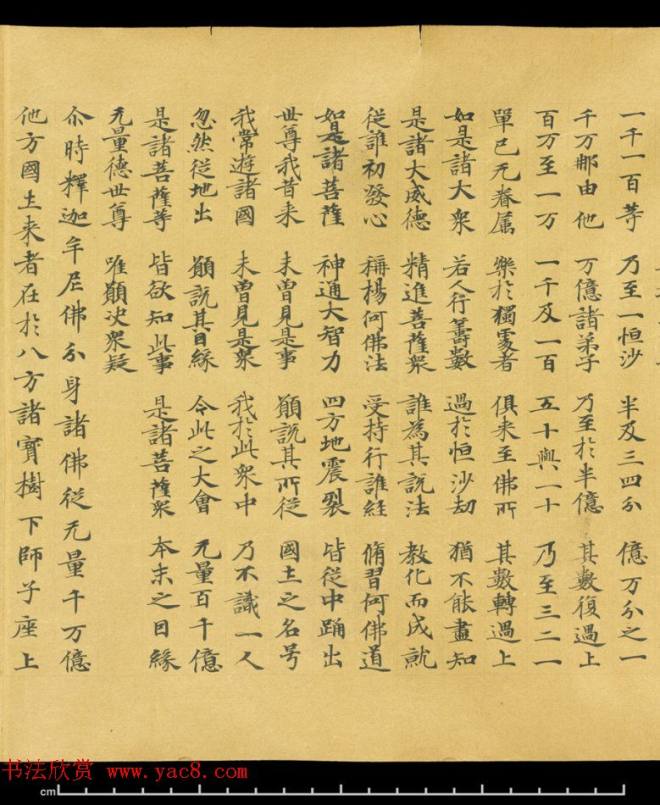 一千一百等 乃至一恒沙 半及三四分 億万分之一
千万那由他 万億諸弟子 乃至於半億 其數復過上
百万至一万 一千及一百 五十與一十 乃至三二一
單已无眷属 樂於獨處者 俱来至佛所 其數轉過上
如是諸大衆 若人行籌數 過於恒沙劫 猶不能盡知
是諸大威德 精進菩薩衆 誰為其說法 教化而成就
從誰初發心 稱楊何佛法 受持行誰經 脩習何佛道
如是諸菩薩 神通大智力 四方地震裂 皆從中踊出
世尊我昔来 未曽見是事 願說其所從 國土之名号
我常遊諸國 未曽見是衆 我於此衆中 乃不識一人
忽然從地出 願說其因緣 今此之大會 无量百千億
是諸菩薩等 皆欲知此事 是諸菩薩衆 本末之因緣
无量德世尊 唯願决衆疑
尒時釋迦牟尼佛分身諸佛從无量千万億
他方國土来者在於八方諸寳樹下師子座上
书法欣赏 www.yac8.com
cm